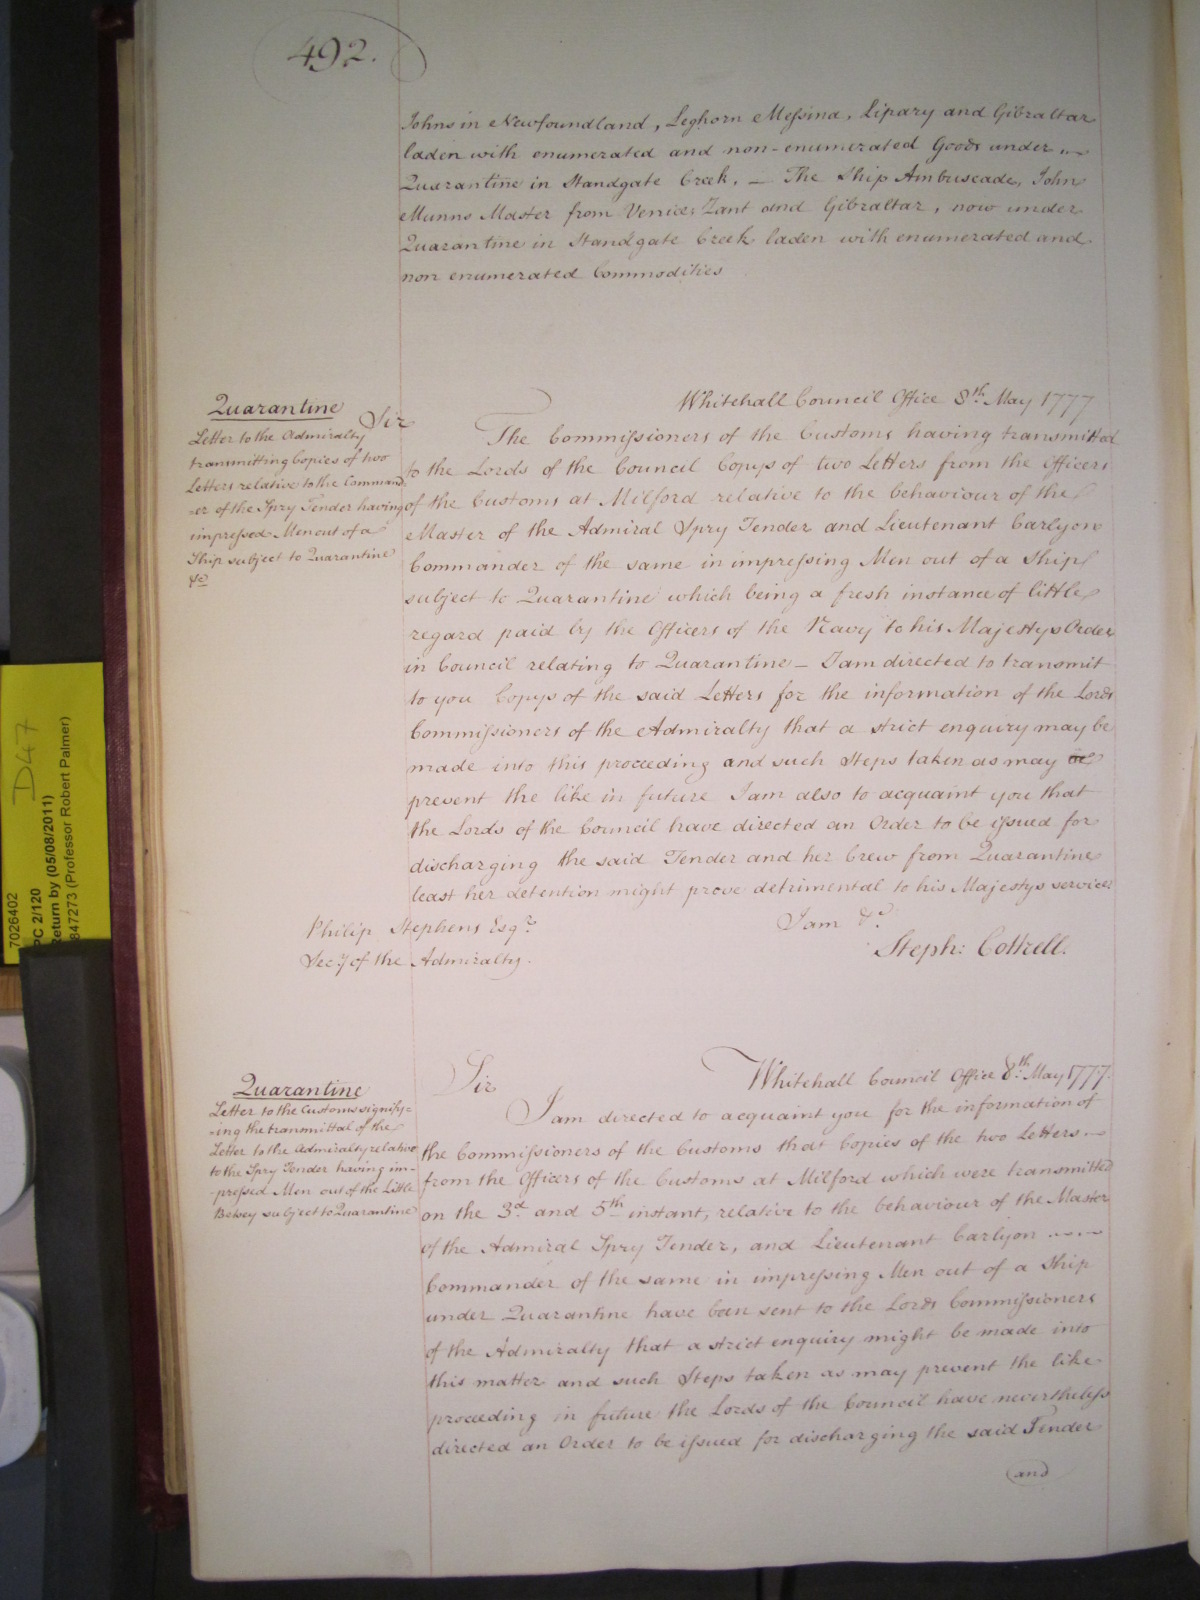 492.
Johns in Newfoundland, Leghorn Messina, Lipary and Gibraltar
laden with enumerated and non-enumerated Goods under
Quarantine in Standgate Creek. — The Ship Ambuscade, John
Munns Master from Venice, Zant and Gibraltar, now under
Quarantine in Standgate Creek laden with enumerated and
non enumerated Commodities
Quarantine
Letter to the Admiralty
transmitting Copies of two
Letters relative to the Command
=er of the Spry Tender having
impressed Men out of a
Ship subject to Quarantine
&c
Whitehall Council Office 8th May 1777
Sir
The Commissioners of the Customs having transmitted
to the Lords of the Council Copys of two Letters from the Officers
of the Customs at Milford relative to the behaviour of the
Master of the Admiral Spry Tender and Lieutenant Carlyon
Commander of the same in impressing Men out of a Ship
subject to Quarantine which being a fresh instance of little
regard paid by the Officers of the Navy to his Majestys Order
in Council relating to Quarantine — I am directed to transmit
to you Copys of the said Letters for the information of the Lords
Commissioners of the Admiralty that a strict enquiry may be
made into this proceeding and such Steps taken as may
prevent the like in future I am also to acquaint you that
the Lords of the Council have directed an Order to be issued for
discharging the said Tender and her Crew from Quarantine
least her detention might prove detrimental to his Majestys service
I am &c.
Steph: Cottrell.
Philip Stephens Esqr.
Secy of the Admiralty.
Quarantine
Letter to the Customs signify=
=ing the transmittal of the
Letter to the Admiralty relative
to the Spry Tender having im-
-pressed Men out of the Little
Betsey subject to Quarantine
Whitehall Council Office 8th May 1777.
Sir
I am directed to acquaint you for the information of
the Commissioners of the Customs that Copies of the two Letters
from the Officers of the Customs at Milford which were transmitted
on the 3d and 5th instant, relative to the behaviour of the Master
of the Admiral Spry Tender, and Lieutenant Carlyon
Commander of the same in impressing Men out of a Ship
under Quarantine have been sent to the Lords Commissioners
of the Admiralty that a strict enquiry might be made into
this matter and such Steps taken as may prevent the like
proceeding in future the Lords of the Council have nevertheless
directed an Order to be issued for discharging the said Tender
and
D47
7026402
PC 2/120
Return by (05/08/2011)
847273 (Professor Robert Palmer)